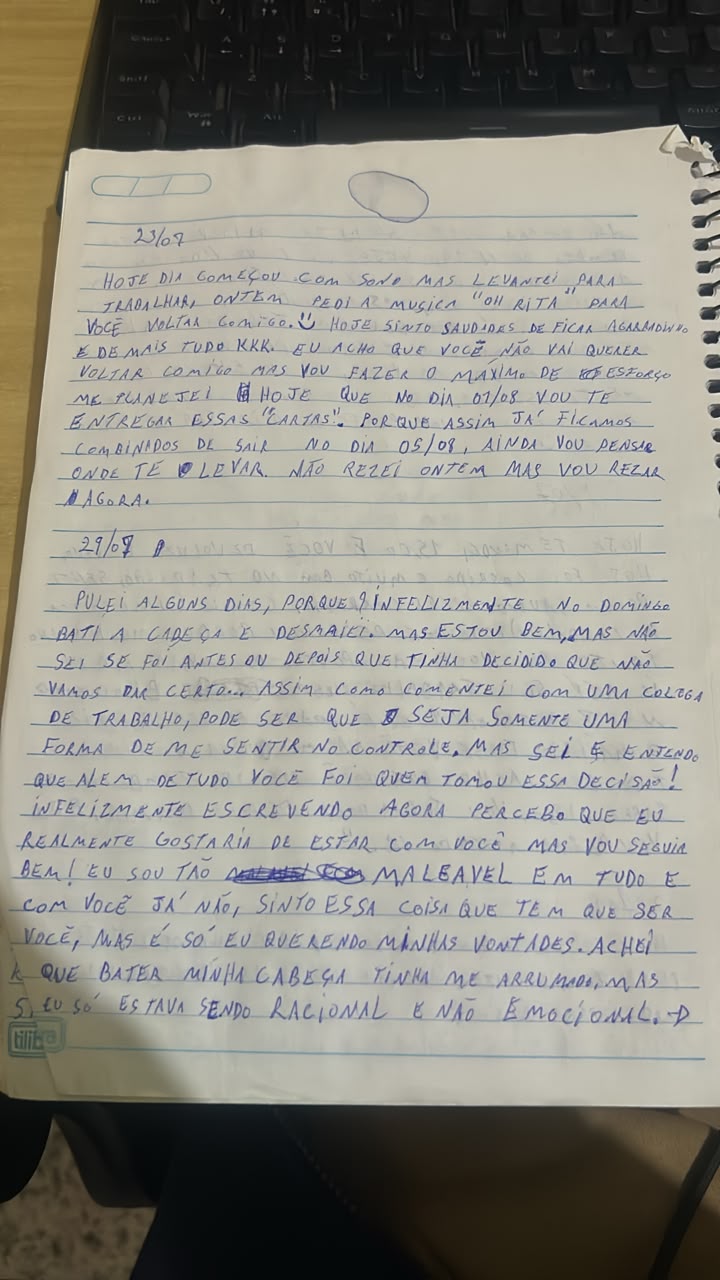 23/07
HOJE DIA COMEÇOU COM SONO MAS LEVANTEI PARA
TRABALHAR, ONTEM PEDI A MUSICA "OH RITA" PARA
VOCÊ VOLTAR COMIGO. HOJE SINTO SAUDADES DE FICAR AGARRADINHO
E DE MAIS TUDO KKK. EU ACHO QUE VOCÊ NÃO VAI QUERER
VOLTAR COMIGO MAS VOU FAZER O MAXIMO DE ESFORÇO
ME PLANEJEI HOJE QUE NO DIA 01/08 VOU TE
ENTREGAR ESSAS "CARTAS". PORQUE ASSIM JÁ FICAMOS
COMBINADOS DE SAIR NO DIA 05/08, AINDA VOU PENSAR
ONDE TE LEVAR. NÃO REZEI ONTEM MAS VOU REZAR
AGORA.
29/07
PULEI ALGUNS DIAS, PORQUE? INFELIZMENTE NO DOMINGO
BATI A CABEÇA E DESMAIEI. MAS ESTOU BEM, MAS NÃO
SEI SE FOI ANTES OU DEPOIS QUE TINHA DECIDIDO QUE NÃO
VAMOS DAR CERTO... ASSIM COMO COMENTEI COM UMA COLEGA
DE TRABALHO, PODE SER QUE SEJA SOMENTE UMA
FORMA DE ME SENTIR NO CONTROLE, MAS SEI E ENTENDO
QUE ALEM DE TUDO VOCÊ FOI QUEM TOMOU ESSA DECISÃO!
INFELIZMENTE ESCREVENDO AGORA PERCEBO QUE EU
REALMENTE GOSTARIA DE ESTAR COM VOCÊ MAS VOU SEGUIR
BEM! EU SOU TÃO MALEAVEL EM TUDO E
COM VOCÊ JÁ NÃO, SINTO ESSA COISA QUE TEM QUE SER
VOCÊ, MAS É SÓ EU QUERENDO MINHAS VONTADES. ACHEI
QUE BATER MINHA CABEÇA TINHA ME ARRUMADO, MAS
EU SÓ ESTAVA SENDO RACIONAL E NÃO EMOCIONAL. →
tilibra